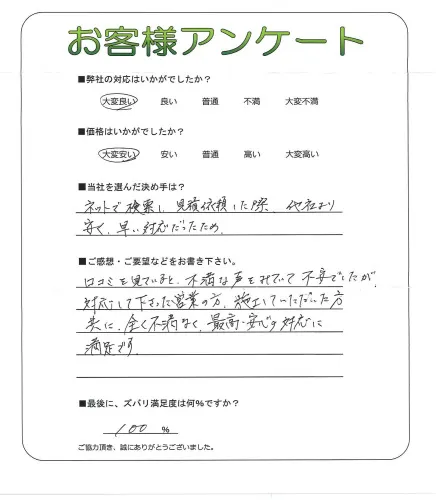 お客様アンケート
■弊社の対応はいかがでしたか？
大変良い 良い 普通 不満 大変不満
■価格はいかがでしたか？
大変安い 安い 普通 高い 大変高い
■当社を選んだ決め手は？
ネットで検索し、見積依頼した際、他社より
安く、早い対応だったため。
■ご感想・ご要望などをお書き下さい。
口コミを見ていると、不満な声をみていて不安でしたが、
対応して下さった営業の方、施工していただいた方
共に、全く不満なく、最高・安心の対応に
満足です。
■最後に、ズバリ満足度は何％ですか？
100 ％
ご協力頂き、誠にありがとうございました。